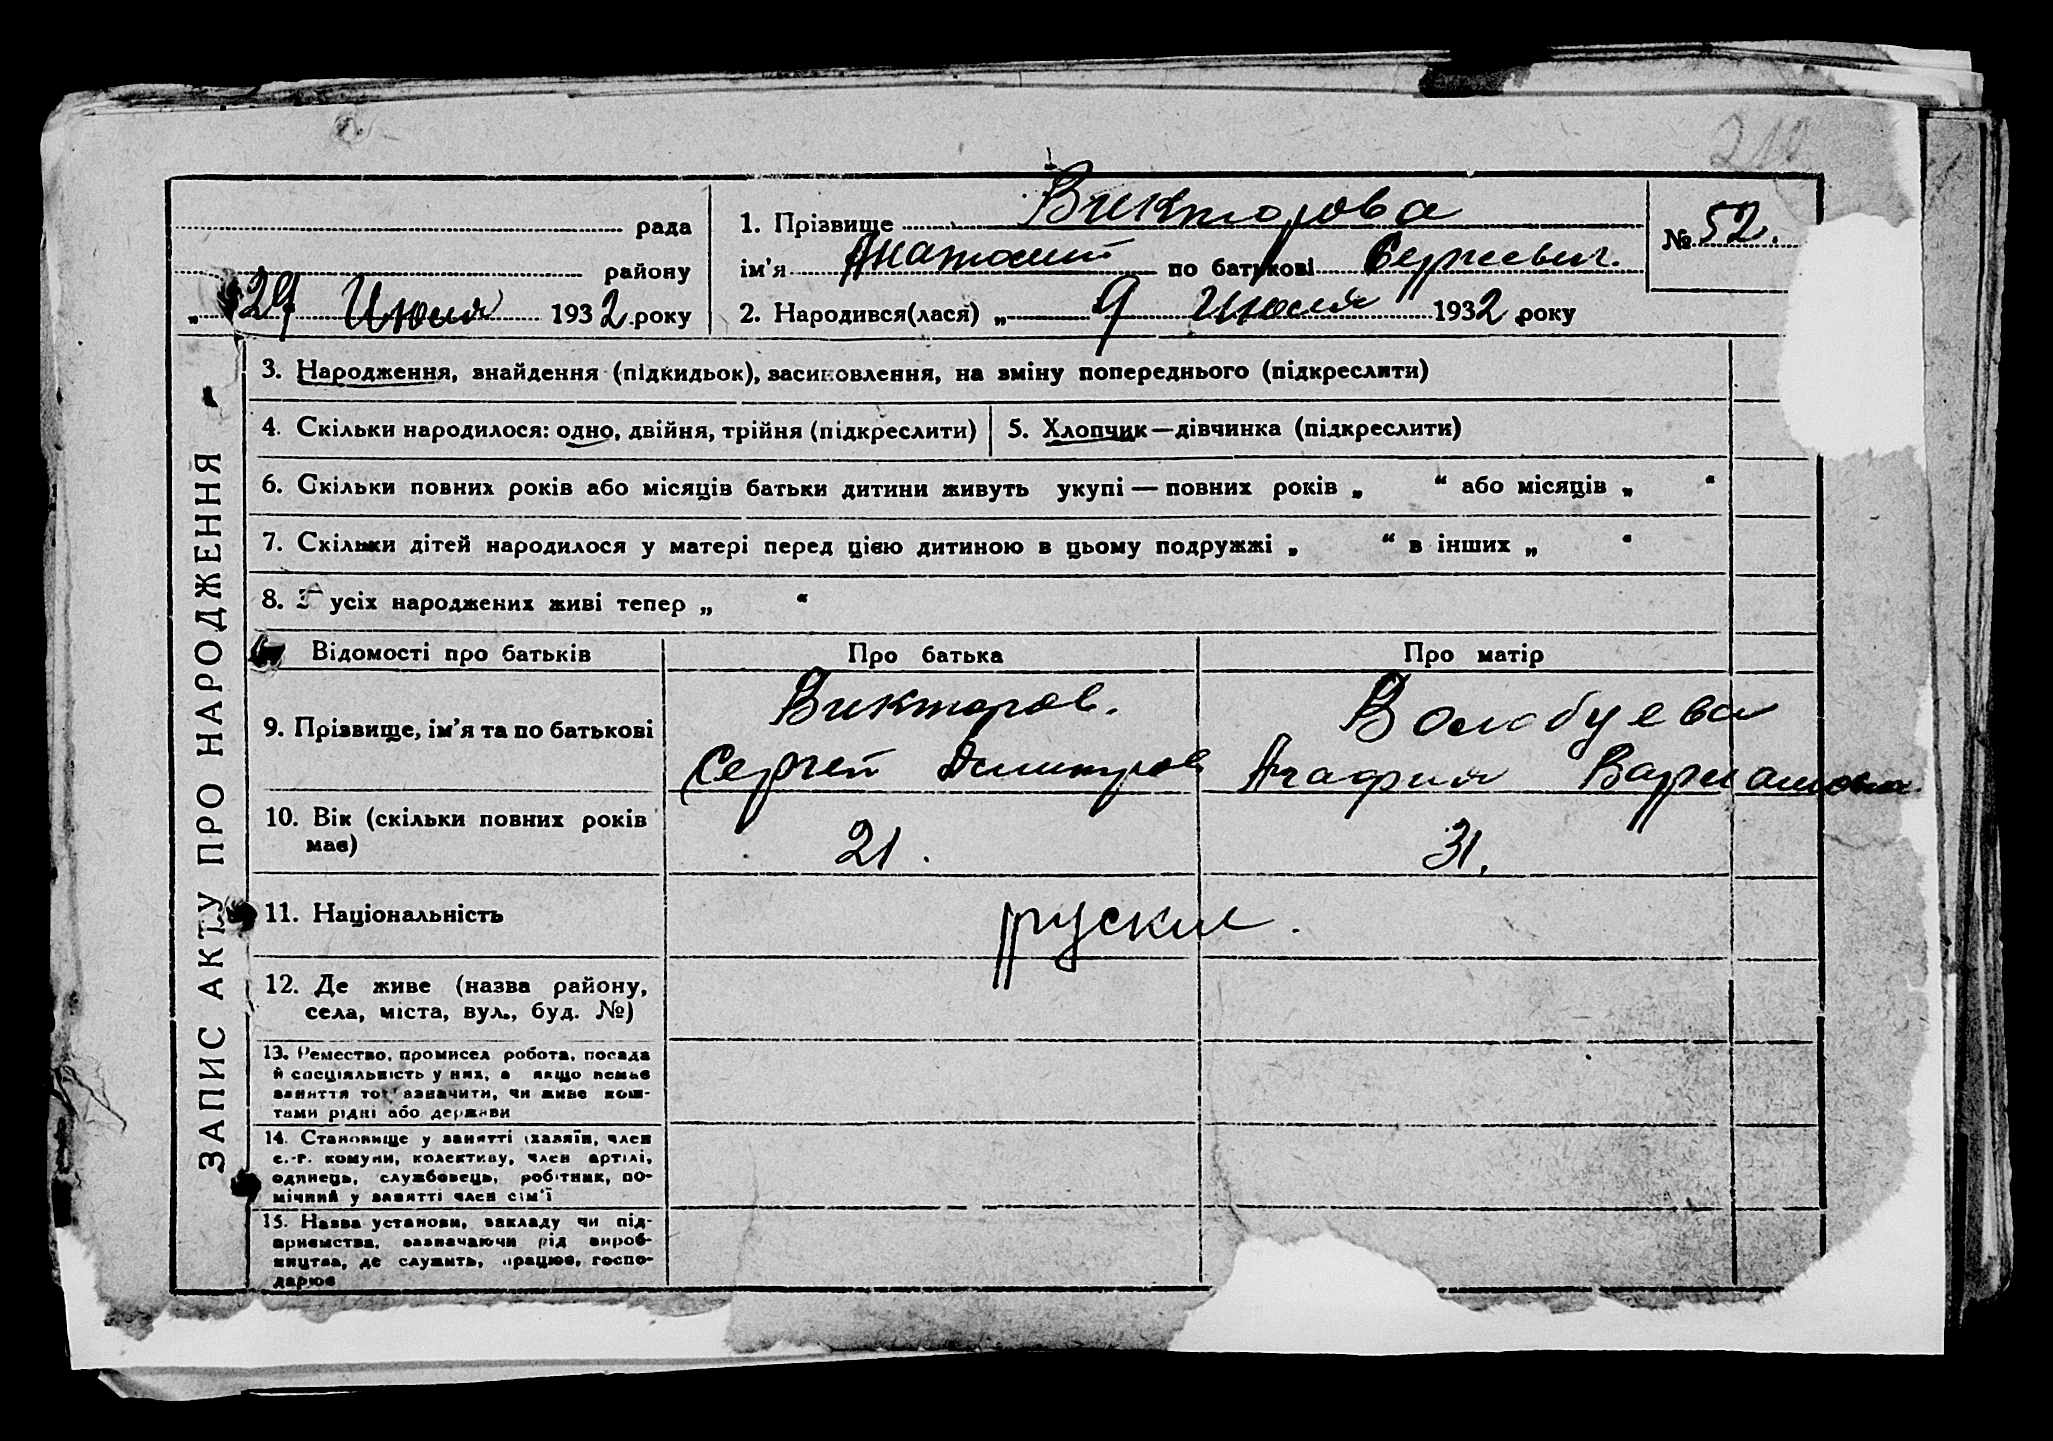 210
рада
району
„29 Июля 1932 року
1. Прізвище Викторова
ім'я Анатолий по батькові Сергиевич.
№ 52.
2. Народився(лася) „ 9 Июля 1932 року
ЗАПИС АКТУ ПРО НАРОДЖЕННЯ
3. Народження, знайдення (підкидьок), засиновлення, на зміну попереднього (підкреслити)
4. Скільки народилося: одно, двійня, трійня (підкреслити)
5. Хлопчик—дівчинка (підкреслити)
6. Скільки повних років або місяців батьки дитини живуть укупі — повних років „ “ або місяців „ “
7. Скільки дітей народилося у матері перед цією дитиною в цьому подружжі „ “ в інших „ “
8. З усіх народжених живі тепер „ “
Відомості про батьків
Про батька
Про матір
9. Прізвище, ім'я та по батькові
Викторов.
Сергей
Волобуева
Агафия
10. Вік (скільки повних років
має)
21.
31.
11. Національність
руские.
12. Де живе (назва району,
села, міста, вул., буд. №)
13. Ремество, промисел робота, посада
й спеціяльність у них, а якщо немає
заняття то зазначити, чи живе кош-
тами рідні або держави
14. Становище у занятті (хазяїн, член
с.-г. комуни, колективу, член артілі,
одинець, службовець, робітник, по-
мічний у занятті член сім'ї
15. Назва установи, закладу чи під-
приємства, зазначаючи рід вироб-
ництва, де служить, працює, госпо-
дарює